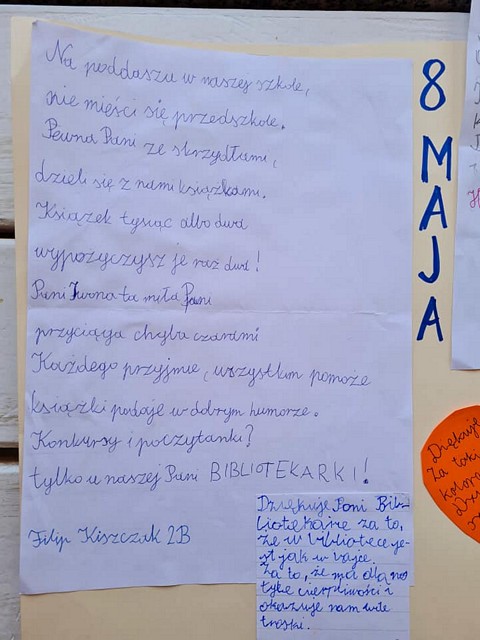 Na poddaszu w naszej szkole,
nie mieści się przedszkole.
Pewna Pani ze skrzydłami,
dzieli się z nami książkami.
Książek tysiąc albo dwa
wypożyczysz je raz dwa!
Pani Iwona ta miła Pani
przyciąga chyba czarami
Każdego przyjmie, wszystkim pomoże
książki podaje w dobrym humorze.
Konkursy i poczytanki?
tylko u naszej Pani BIBLIOTEKARKI!
Filip Kiszczak 2B
8 MAJA
Dziękuje Pani Bib-
liotekarce za to,
że w bibliotece je-
st jak w bajce.
Za to, że ma dla nas
tyle cierpliwości i
okazuje nam wiele
troski.
Dziękuję
Za